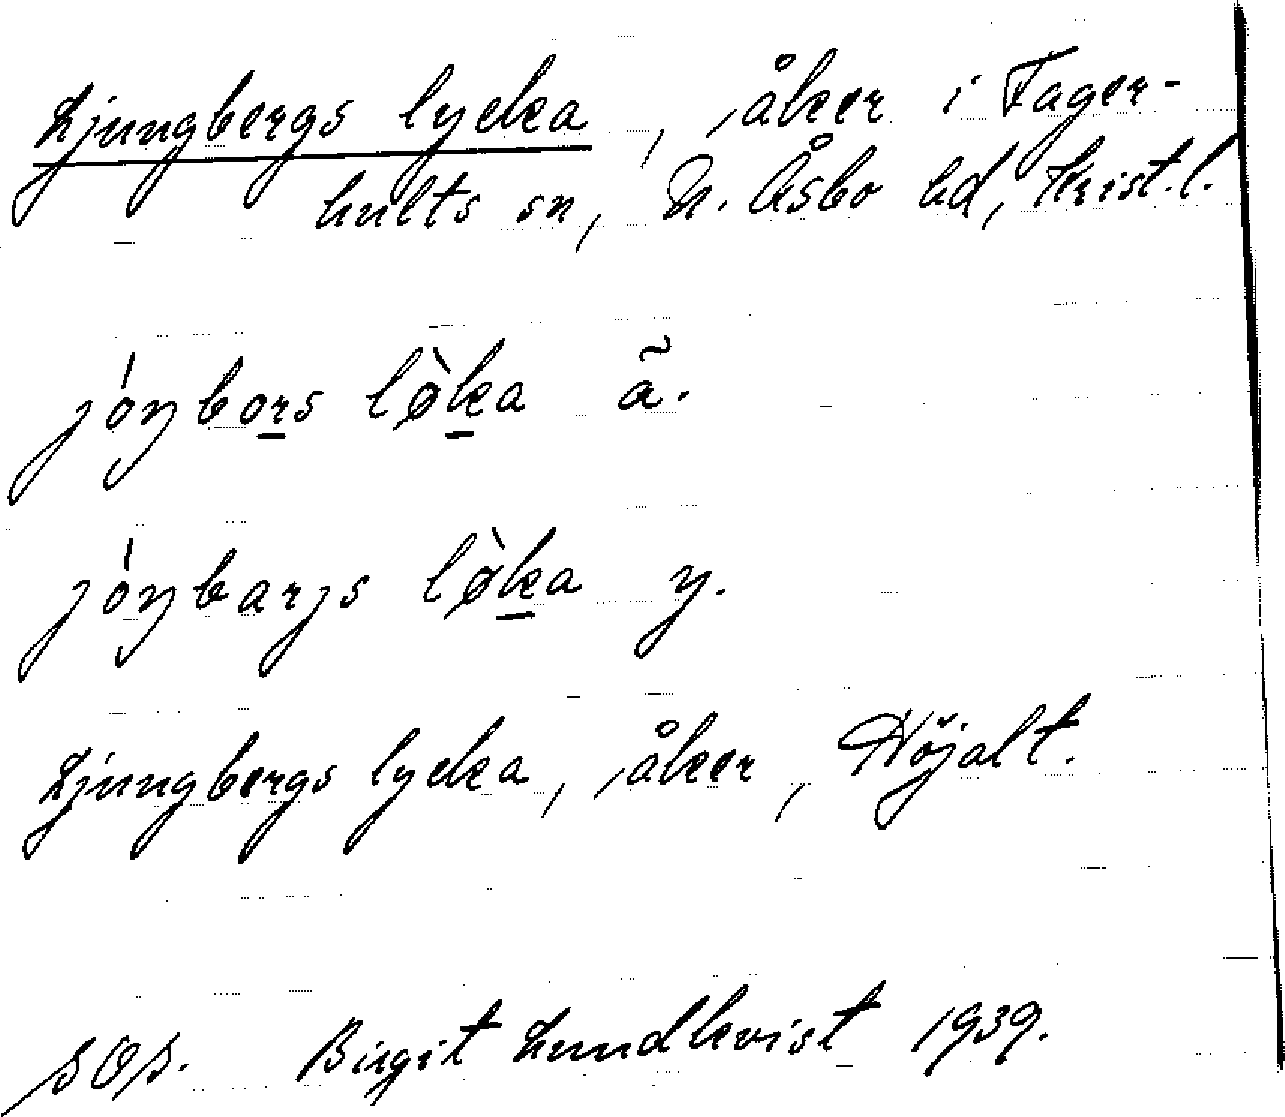 Ljungbergs lycka, åker i Fager-
hults sn, N. Åsbo hd, Krist.l.
jóŋbors lø̀ka ã.
jóŋbarjs lø̀ka y.
Ljungbergs lycka, åker, Höjalt.
Birgit Lundkvist 1939.